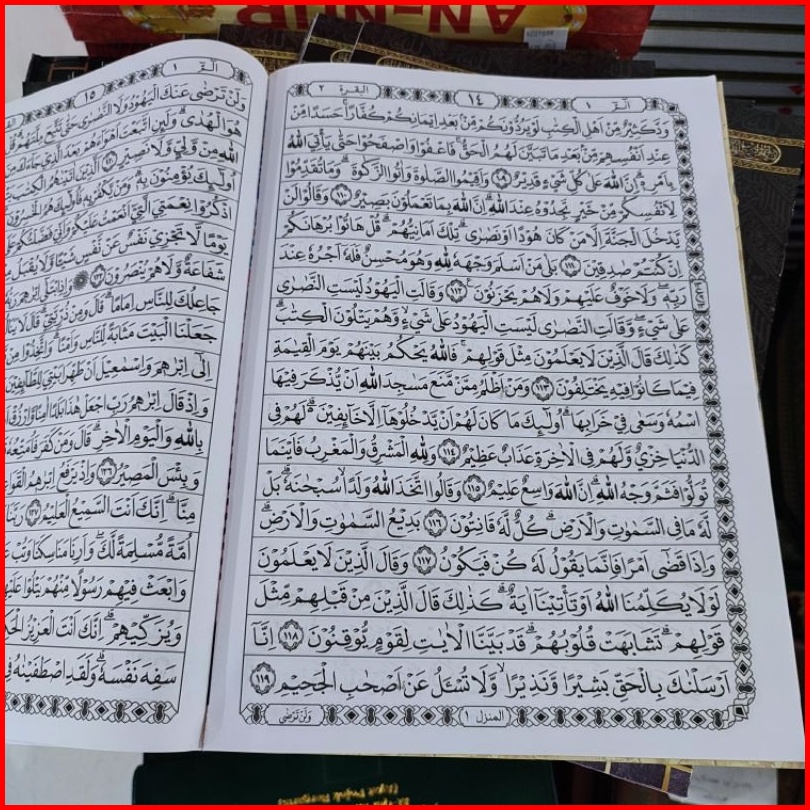 AN-NUR
الٓمّٓ ١ ١٤ البقرة ٢
وَدَّ كَثِيْرٌ مِّنْ اَهْلِ الْكِتٰبِ لَوْ يَرُدُّوْنَكُمْ مِّنْۢ بَعْدِ اِيْمَانِكُمْ كُفَّارًا ۚ حَسَدًا مِّنْ
عِنْدِ اَنْفُسِهِمْ مِّنْۢ بَعْدِ مَا تَبَيَّنَ لَهُمُ الْحَقُّ ۚ فَاعْفُوْا وَاصْفَحُوْا حَتّٰى يَأْتِىَ اللّٰهُ
بِاَمْرِهٖ ؕ اِنَّ اللّٰهَ عَلٰى كُلِّ شَىْءٍ قَدِيْرٌ ﴿١٠٩﴾ وَاَقِيْمُوا الصَّلٰوةَ وَاٰتُوا الزَّكٰوةَ ؕ وَمَا تُقَدِّمُوْا
لِاَنْفُسِكُمْ مِّنْ خَيْرٍ تَجِدُوْهُ عِنْدَ اللّٰهِ ؕ اِنَّ اللّٰهَ بِمَا تَعْمَلُوْنَ بَصِيْرٌ ﴿١١٠﴾ وَقَالُوْا لَنْ
يَّدْخُلَ الْجَنَّةَ اِلَّا مَنْ كَانَ هُوْدًا اَوْ نَصٰرٰى ؕ تِلْكَ اَمَانِيُّهُمْ ؕ قُلْ هَاتُوْا بُرْهَانَكُمْ
اِنْ كُنْتُمْ صٰدِقِيْنَ ﴿١١١﴾ بَلٰى مَنْ اَسْلَمَ وَجْهَهٗ لِلّٰهِ وَهُوَ مُحْسِنٌ فَلَهٗۤ اَجْرُهٗ عِنْدَ
رَبِّهٖ ۪ وَلَا خَوْفٌ عَلَيْهِمْ وَلَا هُمْ يَحْزَنُوْنَ ﴿١١٢﴾ وَقَالَتِ الْيَهُوْدُ لَيْسَتِ النَّصٰرٰى
عَلٰى شَىْءٍ ۪ وَّقَالَتِ النَّصٰرٰى لَيْسَتِ الْيَهُوْدُ عَلٰى شَىْءٍ ۙ وَّهُمْ يَتْلُوْنَ الْكِتٰبَ ؕ
كَذٰلِكَ قَالَ الَّذِيْنَ لَا يَعْلَمُوْنَ مِثْلَ قَوْلِهِمْ ۚ فَاللّٰهُ يَحْكُمُ بَيْنَهُمْ يَوْمَ الْقِيٰمَةِ
فِيْمَا كَانُوْا فِيْهِ يَخْتَلِفُوْنَ ﴿١١٣﴾ وَمَنْ اَظْلَمُ مِمَّنْ مَّنَعَ مَسٰجِدَ اللّٰهِ اَنْ يُّذْكَرَ فِيْهَا
اسْمُهٗ وَسَعٰى فِىْ خَرَابِهَا ؕ اُولٰٓئِكَ مَا كَانَ لَهُمْ اَنْ يَّدْخُلُوْهَاۤ اِلَّا خَآئِفِيْنَ ؕ لَهُمْ فِى
الدُّنْيَا خِزْىٌ وَّلَهُمْ فِى الْاٰخِرَةِ عَذَابٌ عَظِيْمٌ ﴿١١٤﴾ وَلِلّٰهِ الْمَشْرِقُ وَالْمَغْرِبُ فَاَيْنَمَا
تُوَلُّوْا فَثَمَّ وَجْهُ اللّٰهِ ؕ اِنَّ اللّٰهَ وَاسِعٌ عَلِيْمٌ ﴿١١٥﴾ وَقَالُوا اتَّخَذَ اللّٰهُ وَلَدًا ۙ سُبْحٰنَهٗ ؕ بَلْ
لَّهٗ مَا فِى السَّمٰوٰتِ وَالْاَرْضِ ؕ كُلٌّ لَّهٗ قٰنِتُوْنَ ﴿١١٦﴾ بَدِيْعُ السَّمٰوٰتِ وَالْاَرْضِ ؕ
وَاِذَا قَضٰٓى اَمْرًا فَاِنَّمَا يَقُوْلُ لَهٗ كُنْ فَيَكُوْنُ ﴿١١٧﴾ وَقَالَ الَّذِيْنَ لَا يَعْلَمُوْنَ
لَوْلَا يُكَلِّمُنَا اللّٰهُ اَوْ تَأْتِيْنَاۤ اٰيَةٌ ؕ كَذٰلِكَ قَالَ الَّذِيْنَ مِنْ قَبْلِهِمْ مِّثْلَ
قَوْلِهِمْ ؕ تَشَابَهَتْ قُلُوْبُهُمْ ؕ قَدْ بَيَّنَّا الْاٰيٰتِ لِقَوْمٍ يُّوْقِنُوْنَ ﴿١١٨﴾ اِنَّاۤ
اَرْسَلْنٰكَ بِالْحَقِّ بَشِيْرًا وَّنَذِيْرًا ۙ وَّلَا تُسْـَٔلُ عَنْ اَصْحٰبِ الْجَحِيْمِ ﴿١١٩﴾
المنزل ١ وَلَنْ تَرْضٰى
الٓمّٓ ١ ١٥
وَلَنْ تَرْضٰى عَنْكَ الْيَهُوْدُ وَلَا النَّصٰرٰى حَتّٰى تَتَّبِعَ مِلَّتَهُمْ
هُوَ الْهُدٰى ؕ وَلَئِنِ اتَّبَعْتَ اَهْوَآءَهُمْ بَعْدَ الَّذِىْ جَآءَكَ
اللّٰهِ مِنْ وَّلِىٍّ وَّلَا نَصِيْرٍ ﴿١٢٠﴾ اَلَّذِيْنَ اٰتَيْنٰهُمُ الْكِتٰبَ
اُولٰٓئِكَ يُؤْمِنُوْنَ بِهٖ ؕ وَمَنْ يَّكْفُرْ بِهٖ فَاُولٰٓئِكَ هُمُ الْخٰسِرُوْنَ
اذْكُرُوْا نِعْمَتِىَ الَّتِىْۤ اَنْعَمْتُ عَلَيْكُمْ وَاَنِّىْ فَضَّلْتُكُمْ
يَوْمًا لَّا تَجْزِىْ نَفْسٌ عَنْ نَّفْسٍ شَيْـًٔا وَّلَا يُقْبَلُ
شَفَاعَةٌ وَّلَا هُمْ يُنْصَرُوْنَ ﴿١٢٣﴾ وَاِذِ ابْتَلٰٓى اِبْرٰهٖمَ رَبُّهٗ
جَاعِلُكَ لِلنَّاسِ اِمَامًا ؕ قَالَ وَمِنْ ذُرِّيَّتِىْ ؕ قَالَ لَا
جَعَلْنَا الْبَيْتَ مَثَابَةً لِّلنَّاسِ وَاَمْنًا ؕ وَاتَّخِذُوْا مِنْ
اِلٰٓى اِبْرٰهٖمَ وَاِسْمٰعِيْلَ اَنْ طَهِّرَا بَيْتِىَ لِلطَّآئِفِيْنَ
وَاِذْ قَالَ اِبْرٰهٖمُ رَبِّ اجْعَلْ هٰذَا بَلَدًا اٰمِنًا وَّارْزُقْ
بِاللّٰهِ وَالْيَوْمِ الْاٰخِرِ ؕ قَالَ وَمَنْ كَفَرَ فَاُمَتِّعُهٗ
وَبِئْسَ الْمَصِيْرُ ﴿١٢٦﴾ وَاِذْ يَرْفَعُ اِبْرٰهٖمُ الْقَوَاعِدَ
مِنَّا ؕ اِنَّكَ اَنْتَ السَّمِيْعُ الْعَلِيْمُ ﴿١٢٧﴾ رَبَّنَا
اُمَّةً مُّسْلِمَةً لَّكَ ۪ وَاَرِنَا مَنَاسِكَنَا وَتُبْ
وَابْعَثْ فِيْهِمْ رَسُوْلًا مِّنْهُمْ يَتْلُوْا عَلَيْهِمْ
وَيُزَكِّيْهِمْ ؕ اِنَّكَ اَنْتَ الْعَزِيْزُ
سَفِهَ نَفْسَهٗ ؕ وَلَقَدِ اصْطَفَيْنٰهُ